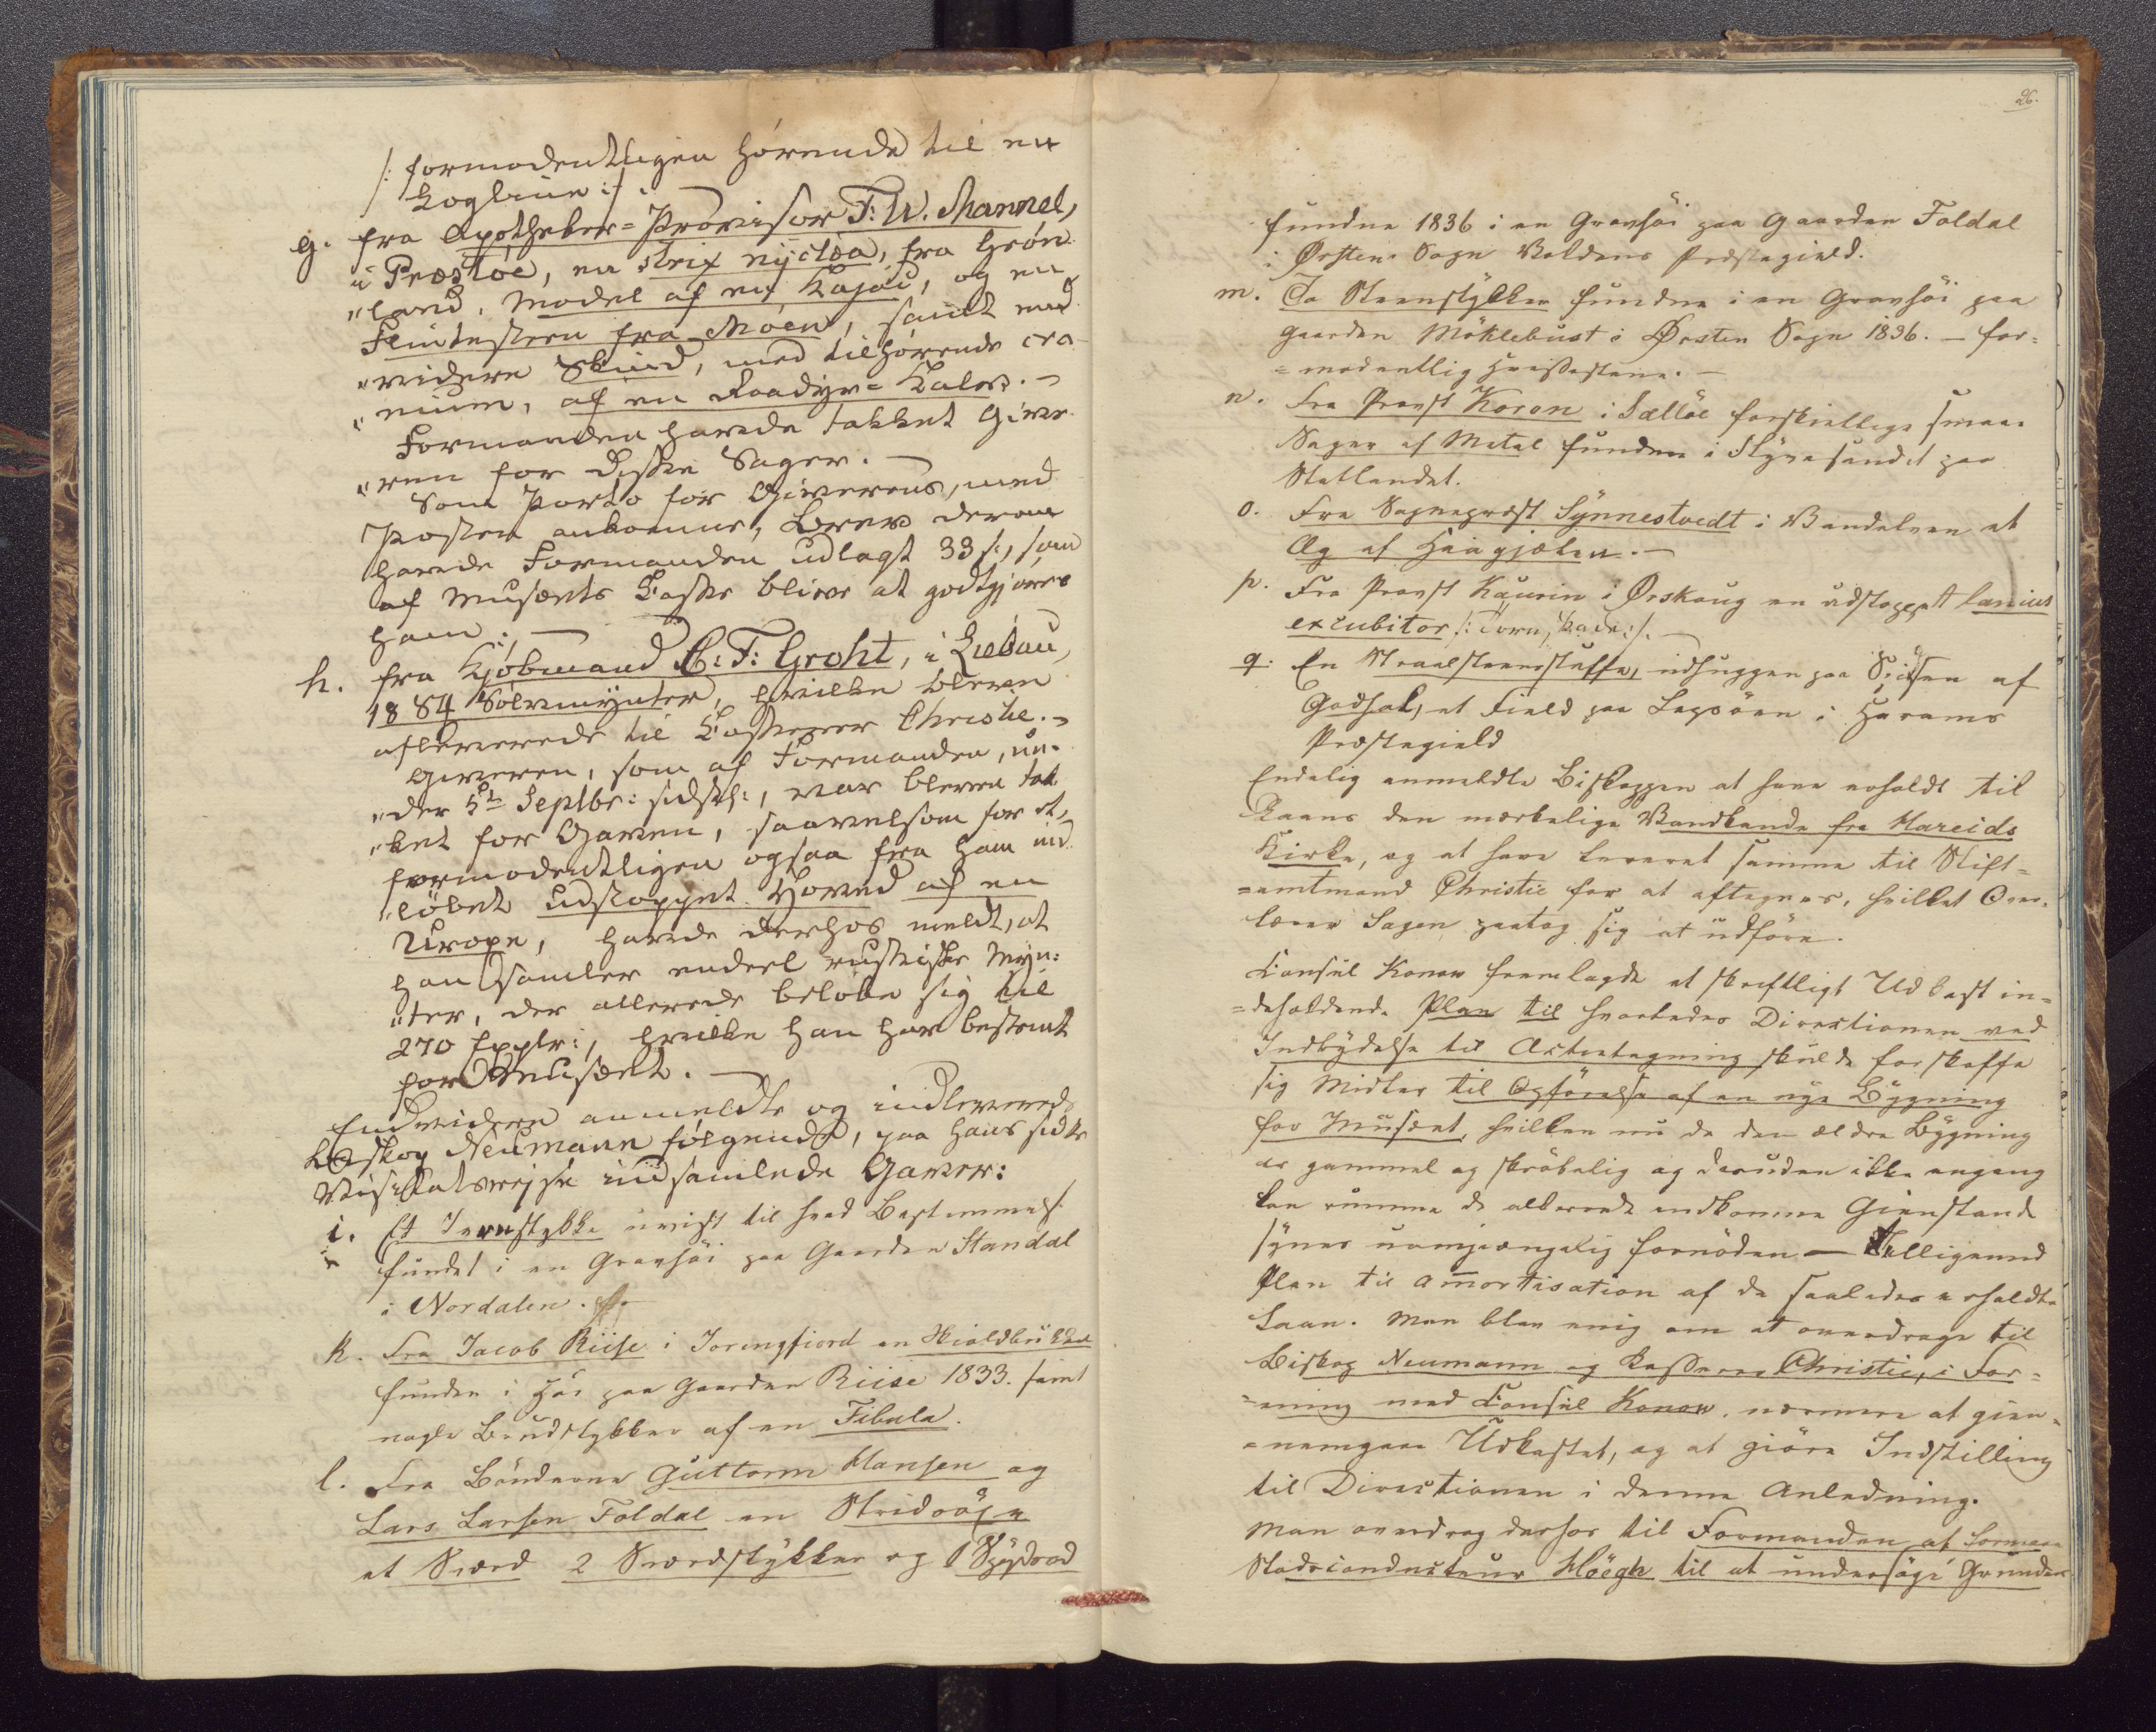 /: formodentligen hörende til en
Koglaue :/.
g. fra Apotheker-Provisor F: W. Mannel,
i Præstöe, en strix nyctea, fra Grön-
"land, Model af en Kajac, og en
Flintesteen fra Möen, samt end-
"videre Skind, med tilhörende cra-
"nium, af en Raadyr-Kalv. -
Formanden havde takket Give-
"ren for disse Sager. -
Som Porto for Giverens, med
Posten ankomne, Brev derom
havde Formanden udlagt 33 s:, som
af Musæets Casse bliver at godtgjöres
ham. -
h. fra Kjöbmand C: F: Groht, i Liebau,
1884 Sölvmynter, hvilke bleve
afleverede til Casserer Christie. -
Giveren, som af Formanden, un-
"der 5te Septbr: sidstl:, var bleven tak-
"ket for Gaven, saavelsom for et,
formodentligen ogsaa fra ham ind-
"löbet udstoppet Hoved af en
Uroxe, havde derhos meldt, at
han samler endeel russiske Myn-
"ter, der allerede belöbe sig til
270 Explr:, hvilke han har bestemt
for Musæet. -
Endvidere anmeldte og indleverede
Biskop Neumann fölgende, paa hans sidste
Visitatsrejse indsamlede Gaver:
i. Et Jernstykke uvist til hvad Bestemmelse
fundet i en Gravhöi paa Gaarden Standal
i Nordalen.
k. Fra Jacob Riise i Joringfiord en Skioldbukkel
funden i Höi paa Gaarden Riise 1833. samt
nogle Brudstykker af en Fibula.
l. Fra Bönderne Guttorm Hansen og
Lars Larsen Foldal en Stridsöxe
et Sværd 2 Sværdstykker og 1 Spydsod
26.
fundne 1836 i en Gravhöi paa Gaarden Foldal
i Örsten Sogn Voldens Præstegield.
m. To Steenstykker fundne i en Gravhöi paa
Gaarden Möklebust i Örsten Sogn 1836. - for=
=modentlig Hvæssestene. -
n. Fra Provst Koren i Sællöe forskiellige smaa
Sager af Metal fundne i Skynesundet paa
Statlandet.
o. Fra Sognepræst Synnestvedt i Vandelven et
Æg af Haagjælen. -
p. Fra Provst Kaurin i Örskoug en udstoppet lanius
excubitor /: Torn skade :/. -
q. En Straalsteensstuffe, udhuggen paa Spidsen af
Godhal, et Field paa Lepsöen i Harams
Præstegield
Endelig anmeldte Biskoppen at have erholdt til
Laans den mærkelige Vandkande fra Hareids
Kirke, og at have leveret samme til Stift=
=amtmand Christie for at aftegnes, hvilket Over-
lærer Sagen paatog sig at udföre.
Consul Konow fremlagde et skriftligt Udkast in=
=deholdende Plan til hvorledes Directionen ved
Indbydelse til Actietegning skulde forskaffe
sig Midler til Opförelse af en nye Bygning
for Musæet, hvilken nu da den ældre Bygning
er gammel og skröbelig og desuden ikke engang
kan rumme de allerede indkomne Gienstande
synes uomgængelig fornöden - Tilligemed
Plan til Amortisation af de saaledes erholdte
Laan. Man blev enig om at overdrage til
Biskop Neumann og Casserer Christie, i For=
=ening med Consul Konow, nærmere at gien=
=nemgaae Udkastet, og at giöre Indstilling
til Directionen i denne Anledning.
Man overdrog derhos til Formanden at
Stadsconducteur Höegh til at undersöge Grunden